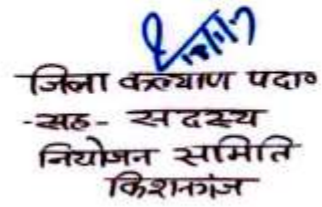 जिला कल्याण पदा०
-सह- सदस्य
नियोजन समिति
किशनगंज